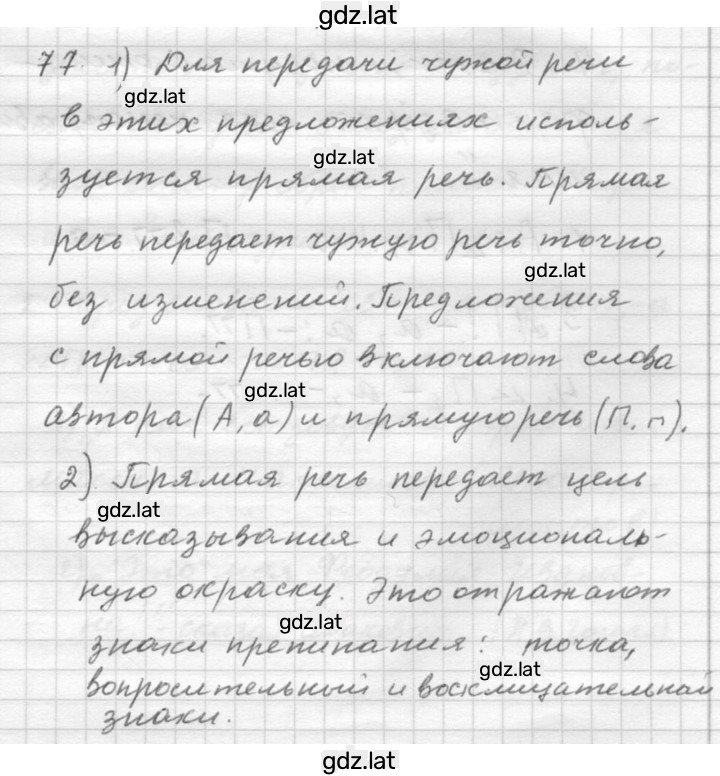 gdz.lat
77. 1) Для передачи чужой речи
gdz.lat
в этих предложениях исполь-
gdz.lat
зуется прямая речь. Прямая
речь передает чужую речь точно,
gdz.lat
без изменений. Предложения
с прямой речью включают слова
gdz.lat
автора (А, а) и прямую речь (П, п).
2) Прямая речь передает цель
gdz.lat
высказывания и эмоциональ-
ную окраску. Это отражают
gdz.lat
знаки препинания: точка,
gdz.lat
вопросительный и восклицательной
знаки.
gdz.lat